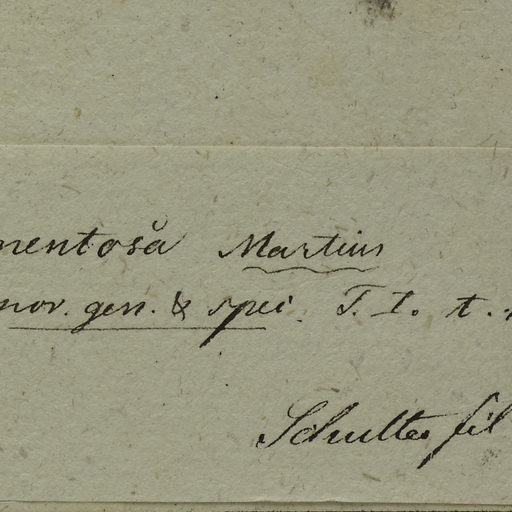 mentosa Martius
nov. gen. & spec. T. I. t.
Schultes fil